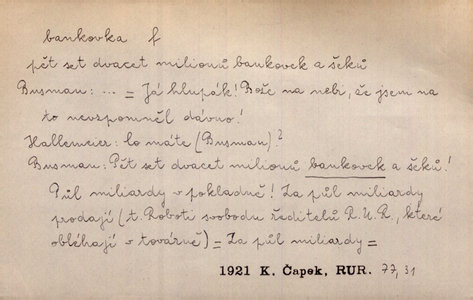 bankovka f
pět set dvacet milionů bankovek a šeků
Busman: ... = Já hlupák! Bože na nebi, že jsem na
to nevzpomněl dávno!
Hallemeier: Co máte (Busman)?
Busman: Pět set dvacet milionů bankovek a šeků!
Půl miliardy v pokladně! Za půl miliardy
prodají (t. Roboti svobodu ředitelů R.U.R., které
obléhají v továrně) = Za půl miliardy =
1921 K. Čapek, RUR. 77,31